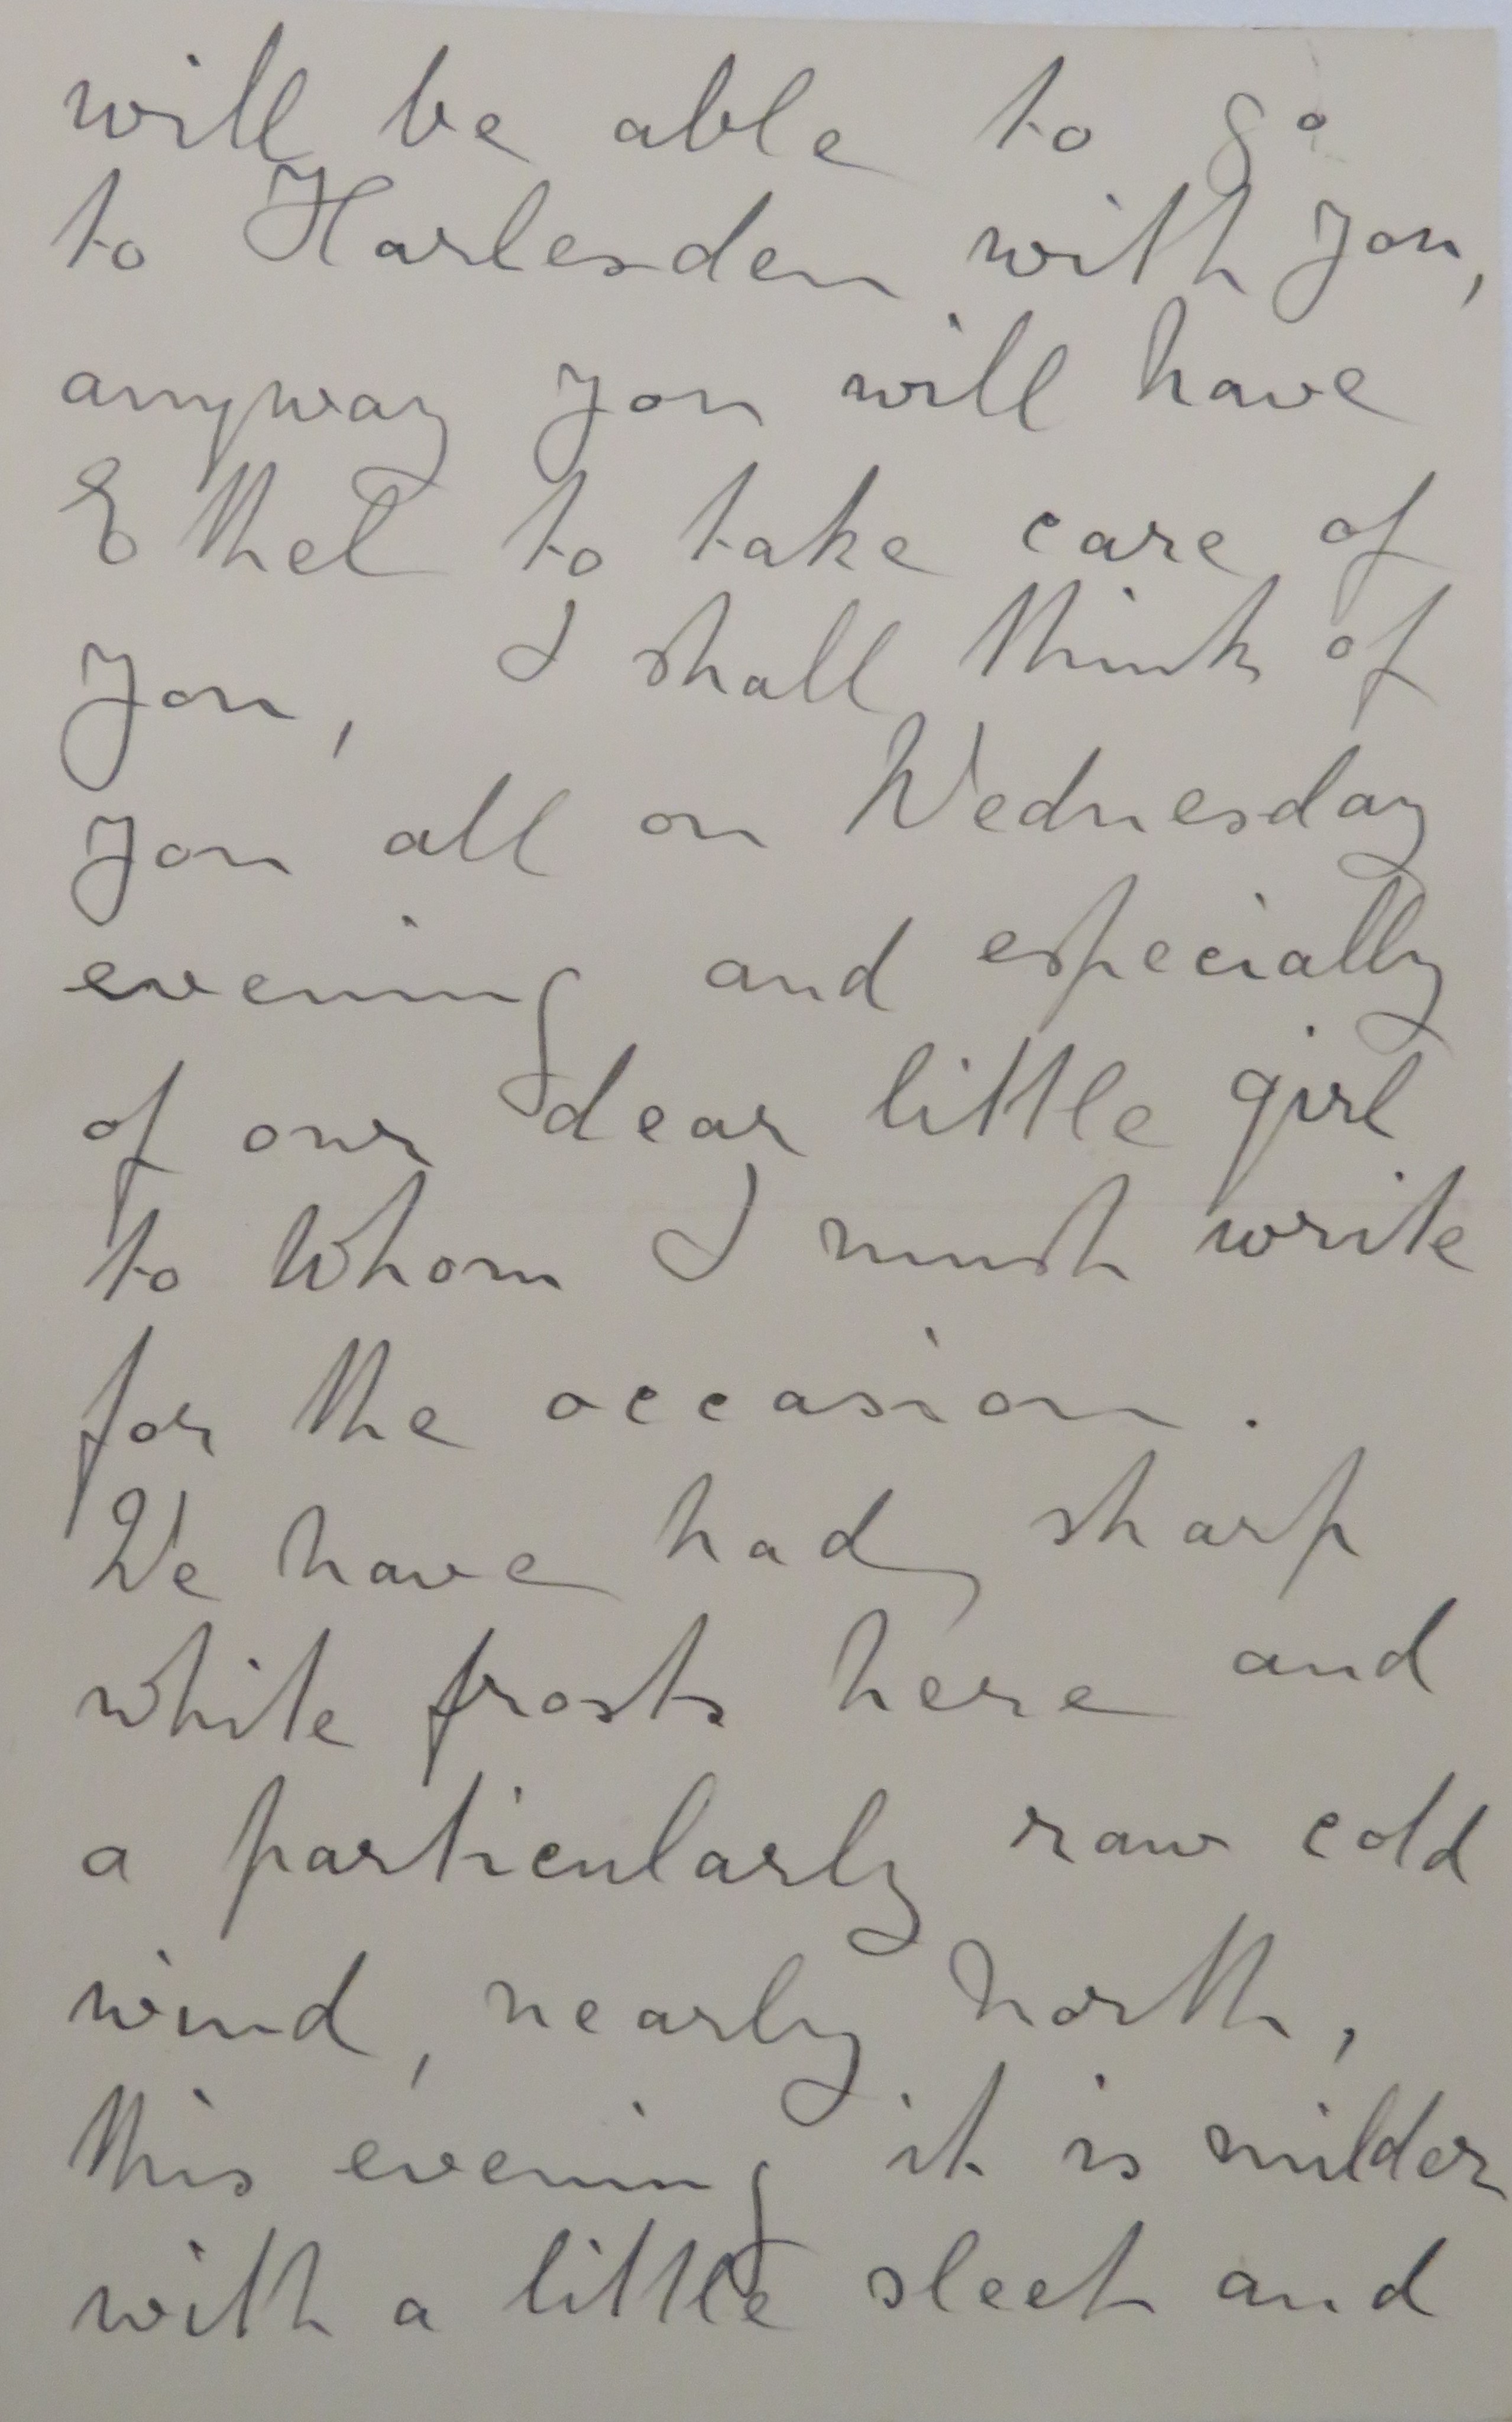 will be able to go
to Harlesden with you,
anyway you will have
Ethel to take care of
you, I shall think of
you all on Wednesday
evening and especially
of our dear little girl
to whom I must write
for the occasion.
We have had sharp
white frosts here and
a particularly raw cold
wind, nearly north,
this evening it is milder
with a little sleet and